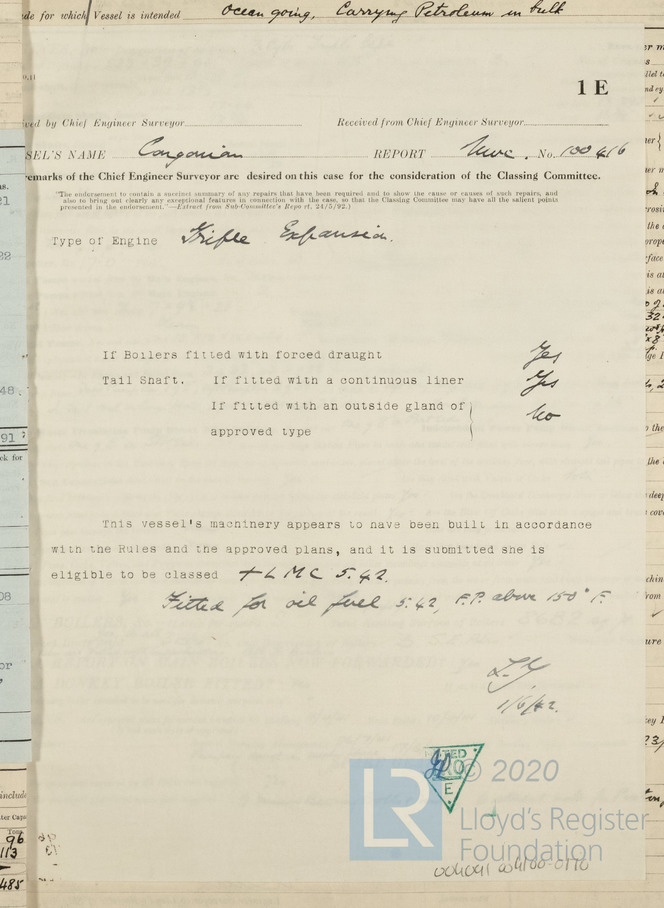 de for which Vessel is intended Ocean going, Carrying Petroleum in bulk
1 E
ved by Chief Engineer Surveyor Received from Chief Engineer Surveyor
SEL'S NAME Congonian REPORT Nwc. No. 100416
emarks of the Chief Engineer Surveyor are desired on this case for the consideration of the Classing Committee.
"The endorsement to contain a succinct summary of any repairs that have been required and to show the cause or causes of such repairs, and
also to bring out clearly any exceptional features in connection with the case, so that the Classing Committee may have all the salient points
presented in the endorsement."—Extract from Sub-Committee's Report, 24/5/92.)
Type of Engine Triple Expansion.
If Boilers fitted with forced draught Yes
Tail Shaft. If fitted with a continuous liner Yes
If fitted with an outside gland of
approved type No
This vessel's machinery appears to have been built in accordance
with the Rules and the approved plans, and it is submitted she is
eligible to be classed + LMC 5.42.
Fitted for oil fuel 5.42, F.P. above 150° F.
1/6/42.
© 2020
LR
Lloyd's Register
Foundation
004091-004100-0170